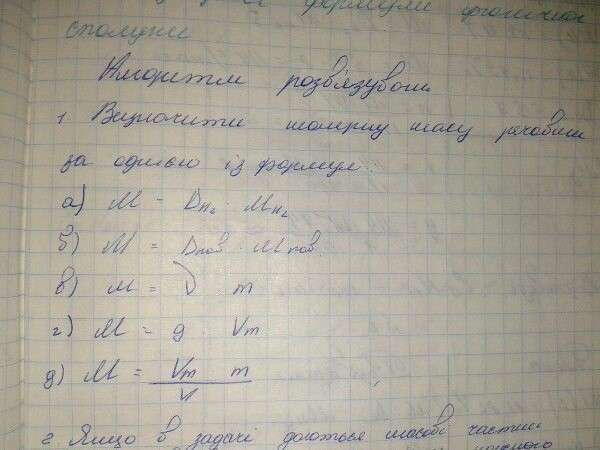 формули органічної
сполуки
Алгоритм розв'язування
1 Визначити молярну масу речовини
за однією із формул:
а) M = DH₂ · MH₂
б) M = Dпов · Mпов
в) M = ν m
г) M = g · Vm
д) M = Vm m
V
2 Якщо в задачі даються масові частки